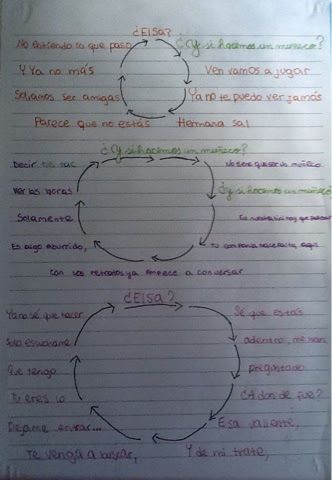 ¿Elsa?
¿Y si hacemos un muñeco?
Ven vamos a jugar
Ya no te puedo ver jamás
Hermana sal
Parece que no estás
Soliamos ser amigas
Y Ya no más
No entiendo lo que paso
¿Y si hacemos un muñeco?
No tiene que ser un muñeco
¿y si hacemos un muñeco
hay que pasear
Tu compania hace falta aqui
Con los retratos ya empece a conversar
Es algo aburrido,
Solamente
Ver las horas
Decir tic tac
¿Elsa?
Sé que estás
adentro, me han
preguntado
¿A donde fue?
Esa valiente,
Y de mi trate,
Te vengo a buscar,
Dejame entrar...
Tu eres lo
Que tengo
Solo escuchame
Ya no sé que hacer